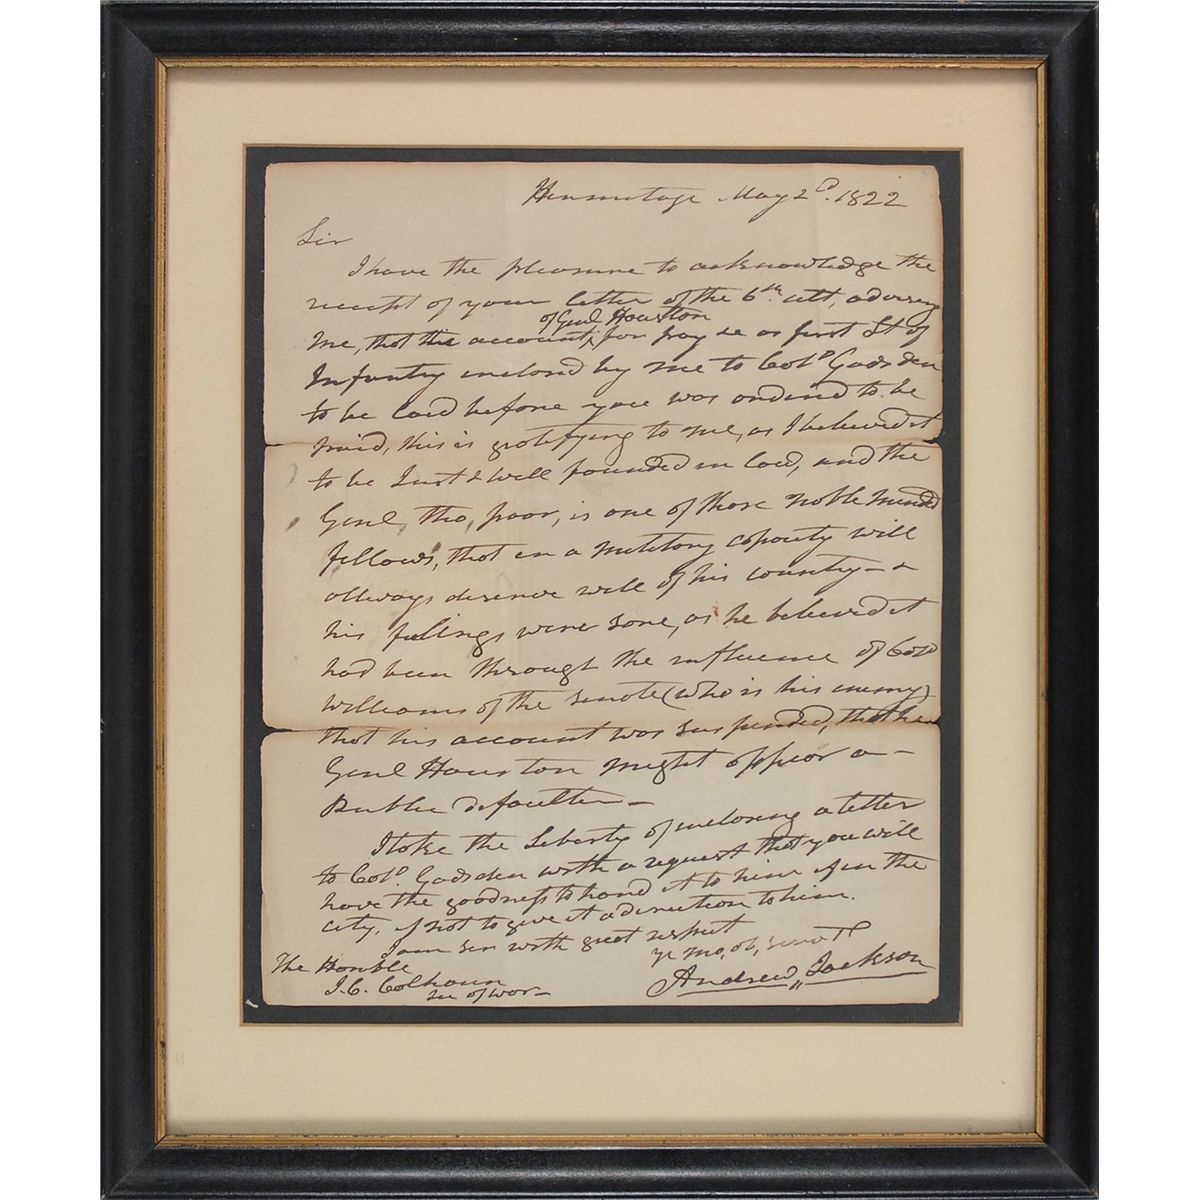 Hermitage May 2d. 1822
Sir
I have the pleasure to acknowledge the
receipt of your letter of the 6th ult, advising
of Genl Houston
me, that the account, for pay &c as first Lt of
Infantry enclosed by me to Colo Gadsden
to be laid before you was ordered to be
paid, this is gratifying to me, as I believed it
to be Just & well founded in law, and the
Genl, tho, poor, is one of those noble minded
fellows, that in a military capacity will
allways deserve well of his country— &
his feelings were sore, as he believed it
had been through the influence of Colo
Williams of the senate (who is his enemy)
that his account was suspended, that he
Genl Houston might appear a—
Public defaulter—
I take the Liberty of inclosing a letter
to Colo. Gadsden with a request that you will
have the goodness to hand it to him if in the
city, if not to give it a direction to him.
I am sir with great respect
yr mo, ob, servt
The Honble
J. C. Calhoun
Sec of war—
Andrew Jackson